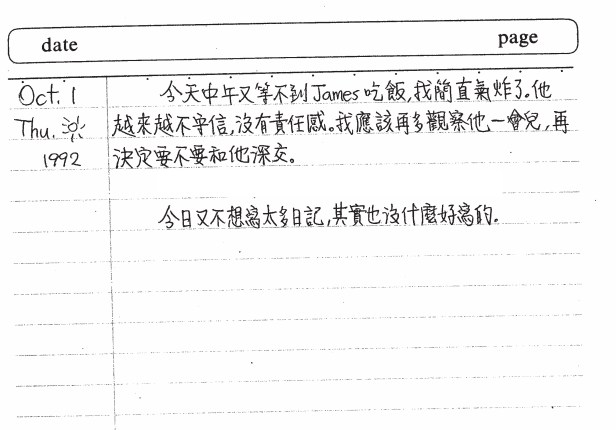 date page
Oct. 1 今天中午又等不到James吃飯,我簡直氣炸了。他
Thu. 越來越不守信,沒有責任感。我應該再多觀察他一會兒,再
1992 決定要不要和他深交。
今日又不想寫太多日記,其實也沒什麼好寫的.